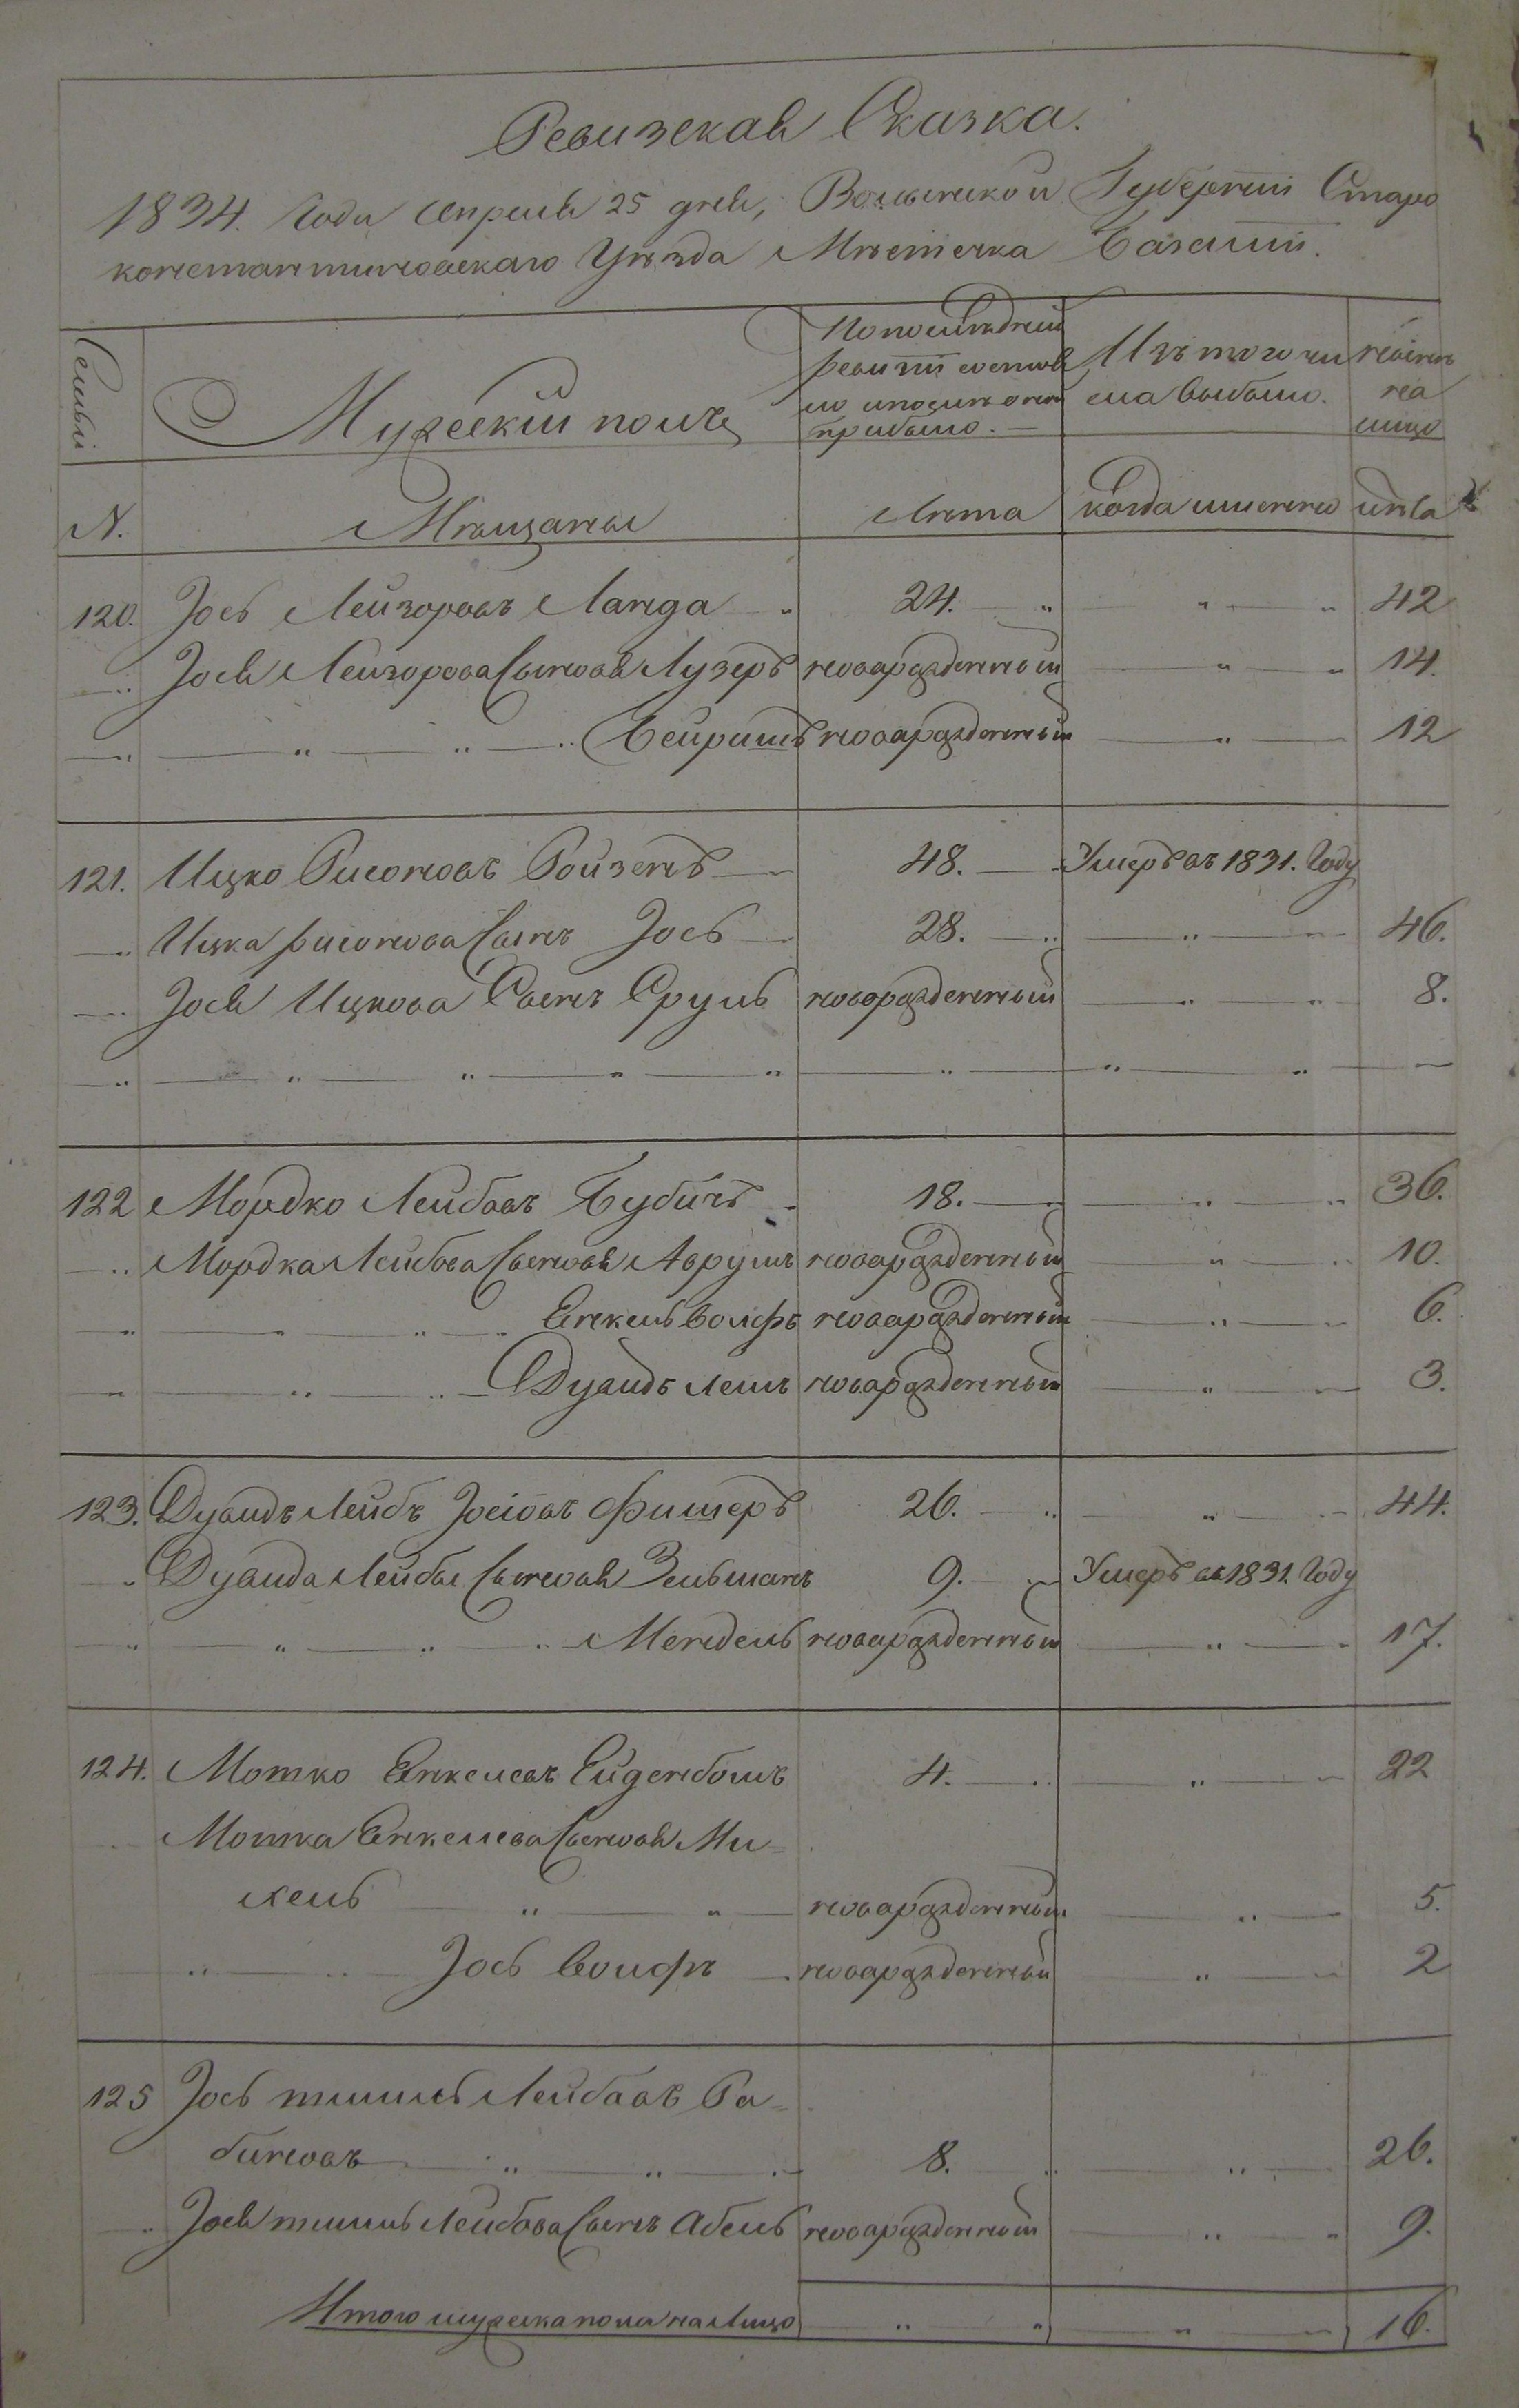 Ревизская Сказка.
1834. Года Апреля 25 дня, Волынской Губернiи Старо
константиновскаго Уѣзда Мѣстечка Базалiи.
Семьи
Мужескiй полъ
По последней
ревизiи состоя
ло и после оной
прибыло. —
Изъ того чи
сла выбыло.
нынѣ
на
лицо
N. Мѣщаны Лѣта когда именно лѣта
120. Іось Лейзоровъ Ланда 24. 42
Іося Лейзорова Сыновья Лузеръ новорожденный 14.
Бейришъ новорожденный 12
121. Ицко Рисоновъ Ройзенъ 48. Умеръ въ 1831. Году
Ицка Рисонова Сынъ Іось 28. 46.
Іося Ицкова Сынъ Сруль новорожденный 8.
122 Мордко Лейбовъ Бубисъ 18. 36.
Мордка Лейбова Сыновья Аврумъ новорожденный 10.
Енкель Волфъ новорожденный 6.
Дувидъ Леиб новорожденный 3.
123. Дувидъ Лейбъ Іосiовъ Фишеръ 26. 44.
Дувида Лейбы Сыновья Зельманъ 9. Умеръ въ 1831. Году
Мендель новорожденный 17.
124. Мотко Енкелевъ Ейденбомъ 4. 22
Мотка Енкелева Сыновья Ми-
хель новорожденный 5.
Іось Волфъ новорожденный 2
125 Іось Лейбовъ Ра-
биновъ 8. 26.
Іося Лейбова Сынъ Абель новорожденный 9.
Итого мужеска пола на Лицо 16.